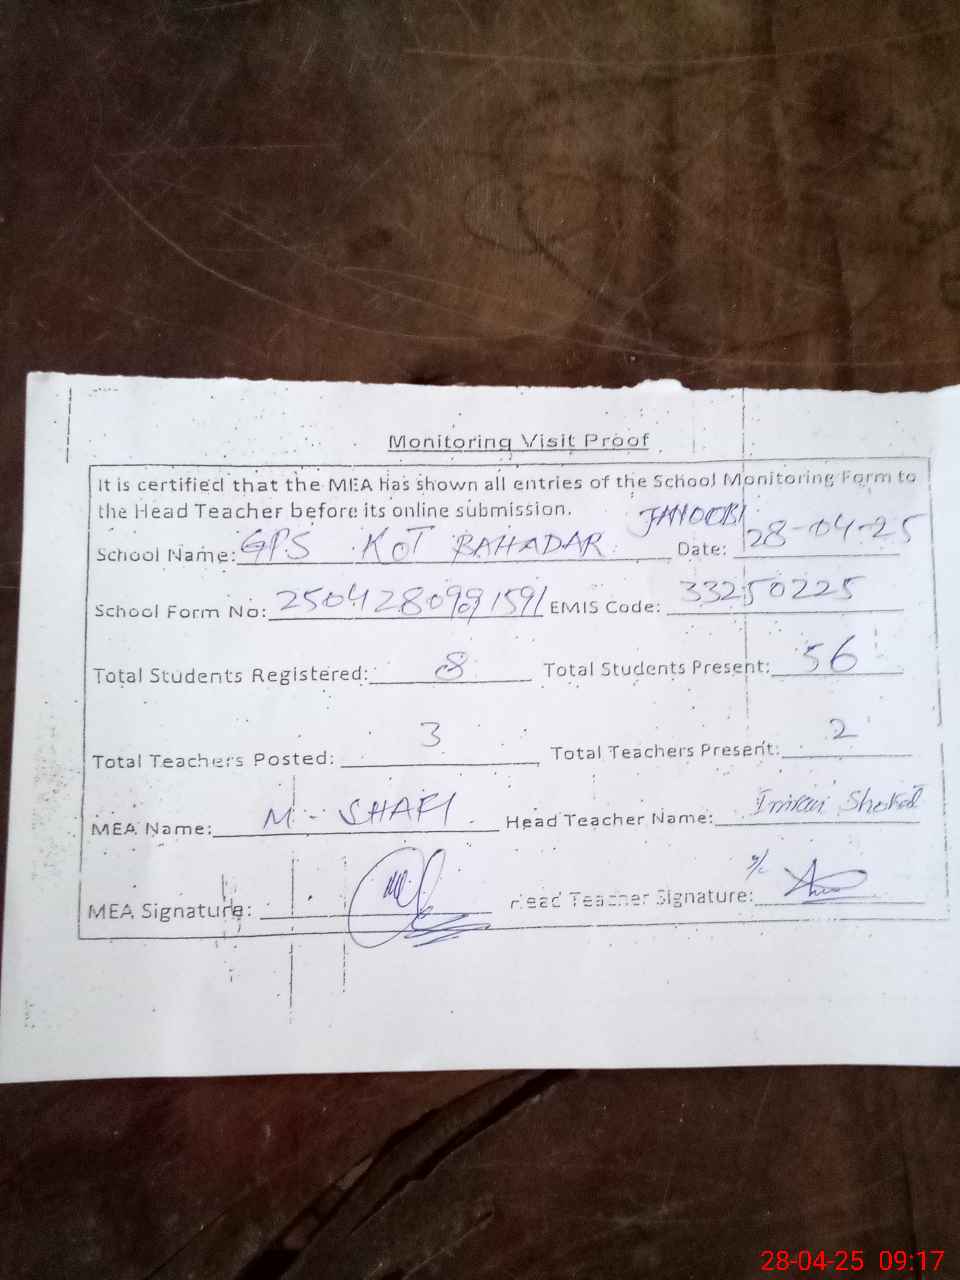 Monitoring Visit Proof
It is certified that the MEA has shown all entries of the School Monitoring Form to
the Head Teacher before its online submission.
School Name: GPS KOT BAHADAR JANOOBI Date: 28-04-25
School Form No: 25042809091591 EMIS Code: 33250225
Total Students Registered: 8 Total Students Present: 56
Total Teachers Posted: 3 Total Teachers Present: 2
MEA Name: M - SHAFI Head Teacher Name: Imran
MEA Signature: Head Teacher Signature:
28-04-25 09:17